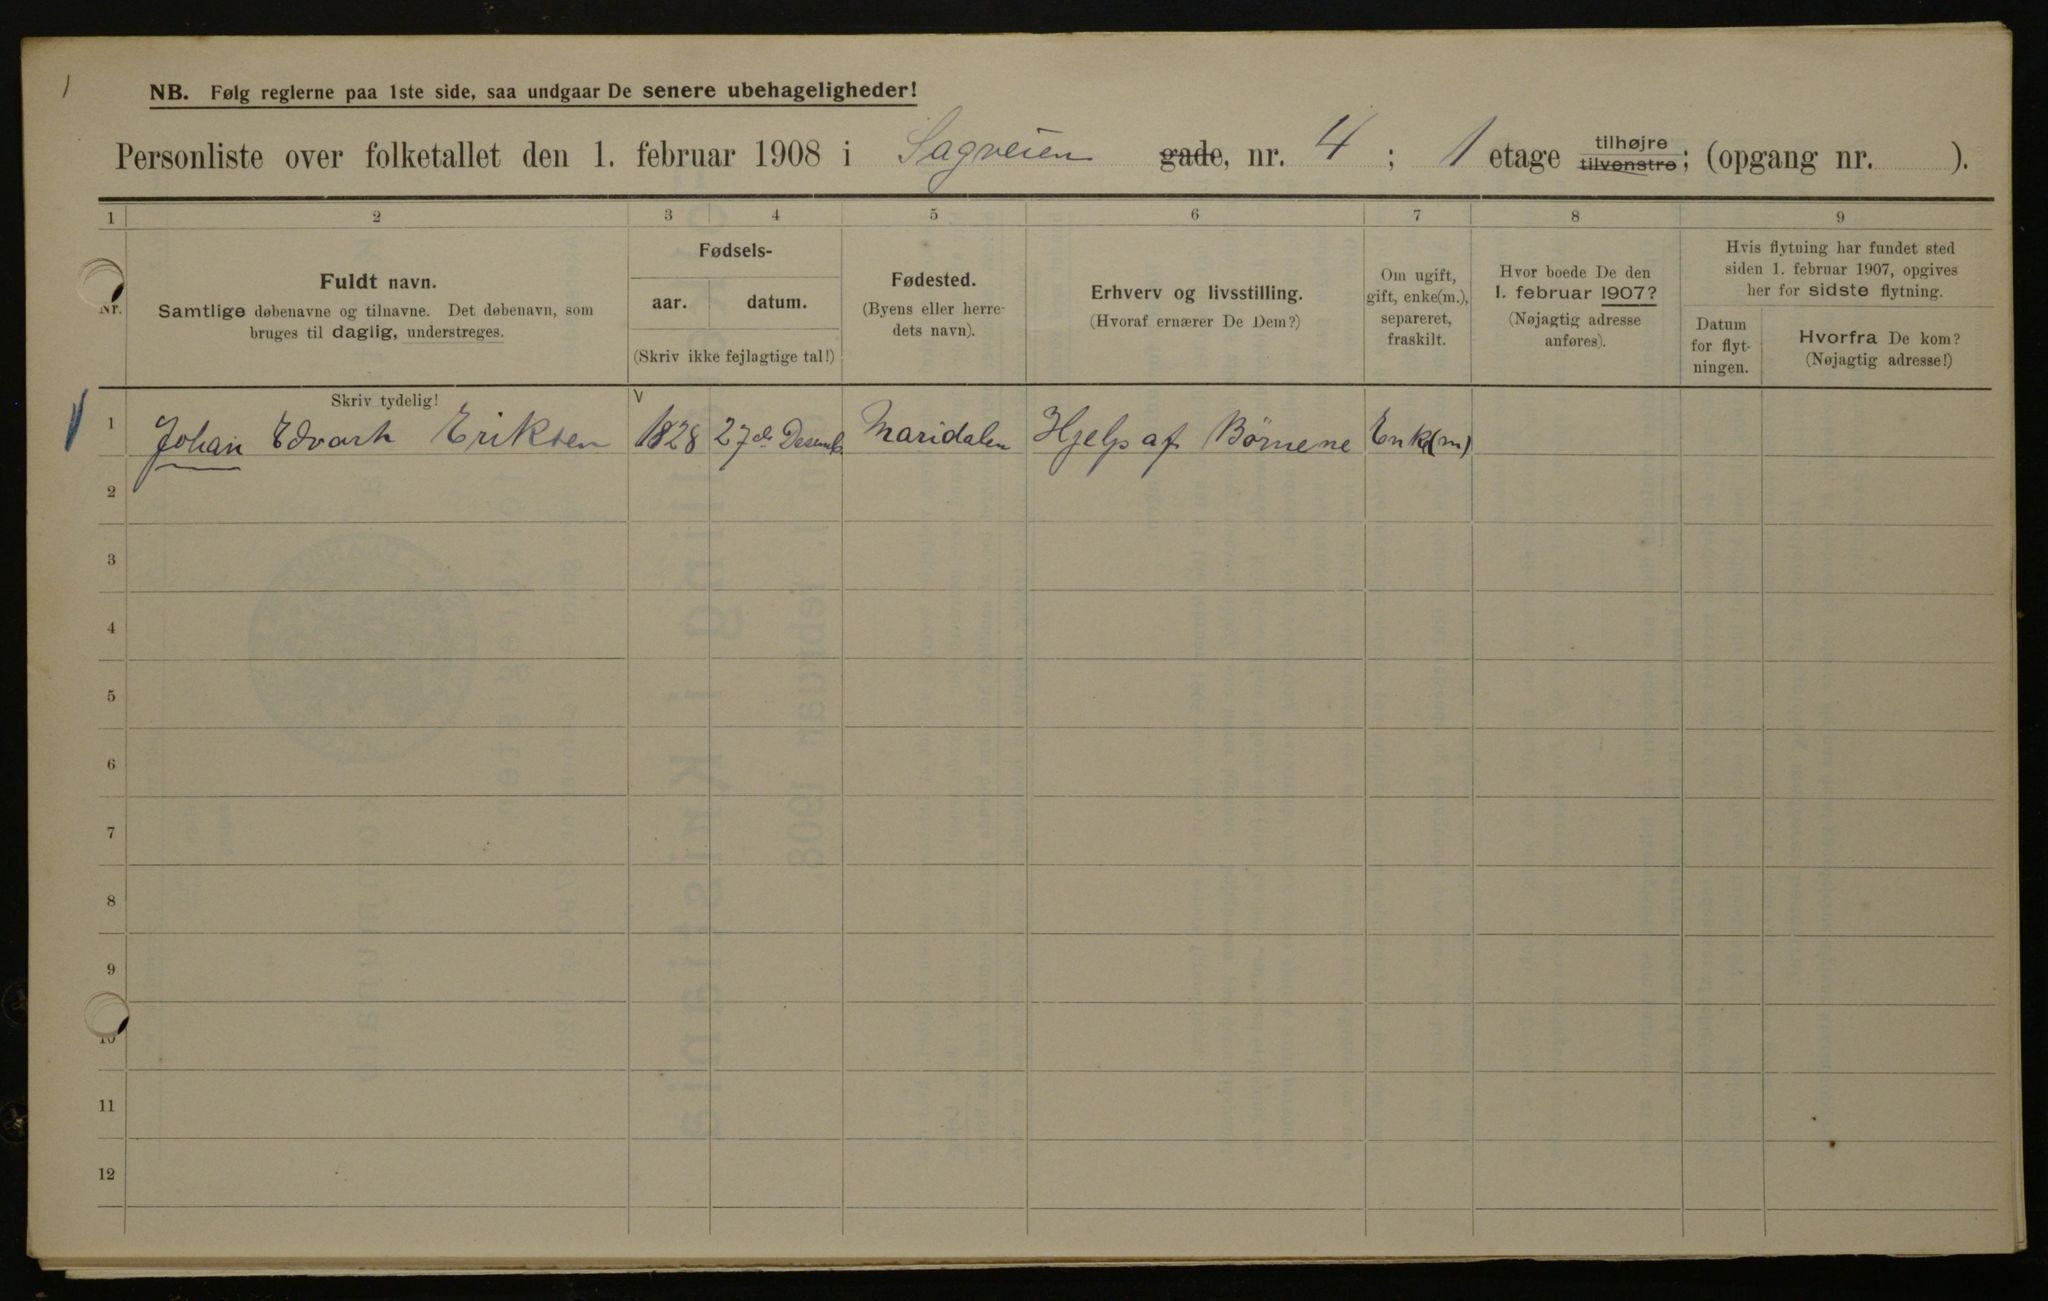 NB. Følg reglerne paa 1ste side, saa undgaar De senere ubehageligheder!
Personliste over folketallet den 1. februar 1908 i Sagveien gade, nr. 4; 1 etage tilhøjre tilvenstre; (opgang nr. ).
1 2 3 4 5 6 7 8 9
Nr.
Fuldt navn.
Samtlige døbenavne og tilnavne. Det døbenavn, som
bruges til daglig, understreges.
Fødsels-
aar. datum.
(Skriv ikke fejlagtige tal!)
Fødested.
(Byens eller herre-
dets navn).
Erhverv og livsstilling.
(Hvoraf ernærer De Dem?)
Om ugift,
gift, enke(m.),
separeret,
fraskilt.
Hvor boede De den
1. februar 1907?
(Nøjagtig adresse
anføres).
Hvis flytning har fundet sted
siden 1. februar 1907, opgives
her for sidste flytning.
Datum
for flyt-
ningen.
Hvorfra De kom?
(Nøjagtig adresse!)
Skriv tydelig!
1 Johan Edvart Eriksen 1828 27de Desemb. Maridalen Hjelp af Børnene Enk(m)
2
3
4
5
6
7
8
9
10
11
12